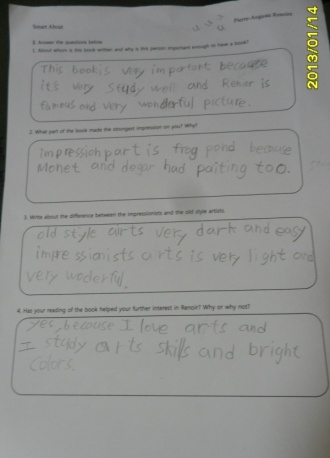 Smart Alice
Pierre-Auguste Renoir
2013/01/14
B. Answer the questions below.
1. About whom is this book written and why is this person important enough to have a book?
This book is very important because
it's very study well and Renoir is
famous and very wonderful picture.
2. What part of the book made the strongest impression on you? Why?
impression part is frog pond because
Monet and degar had paiting too.
3. Write about the difference between the impressionists and the old style artists.
old style arts very dark and easy
impressianists arts is very light and
very woderful.
4. Has your reading of the book helped your further interest in Renoir? Why or why not?
yes, because I love arts and
I study arts skills and bright
colors.